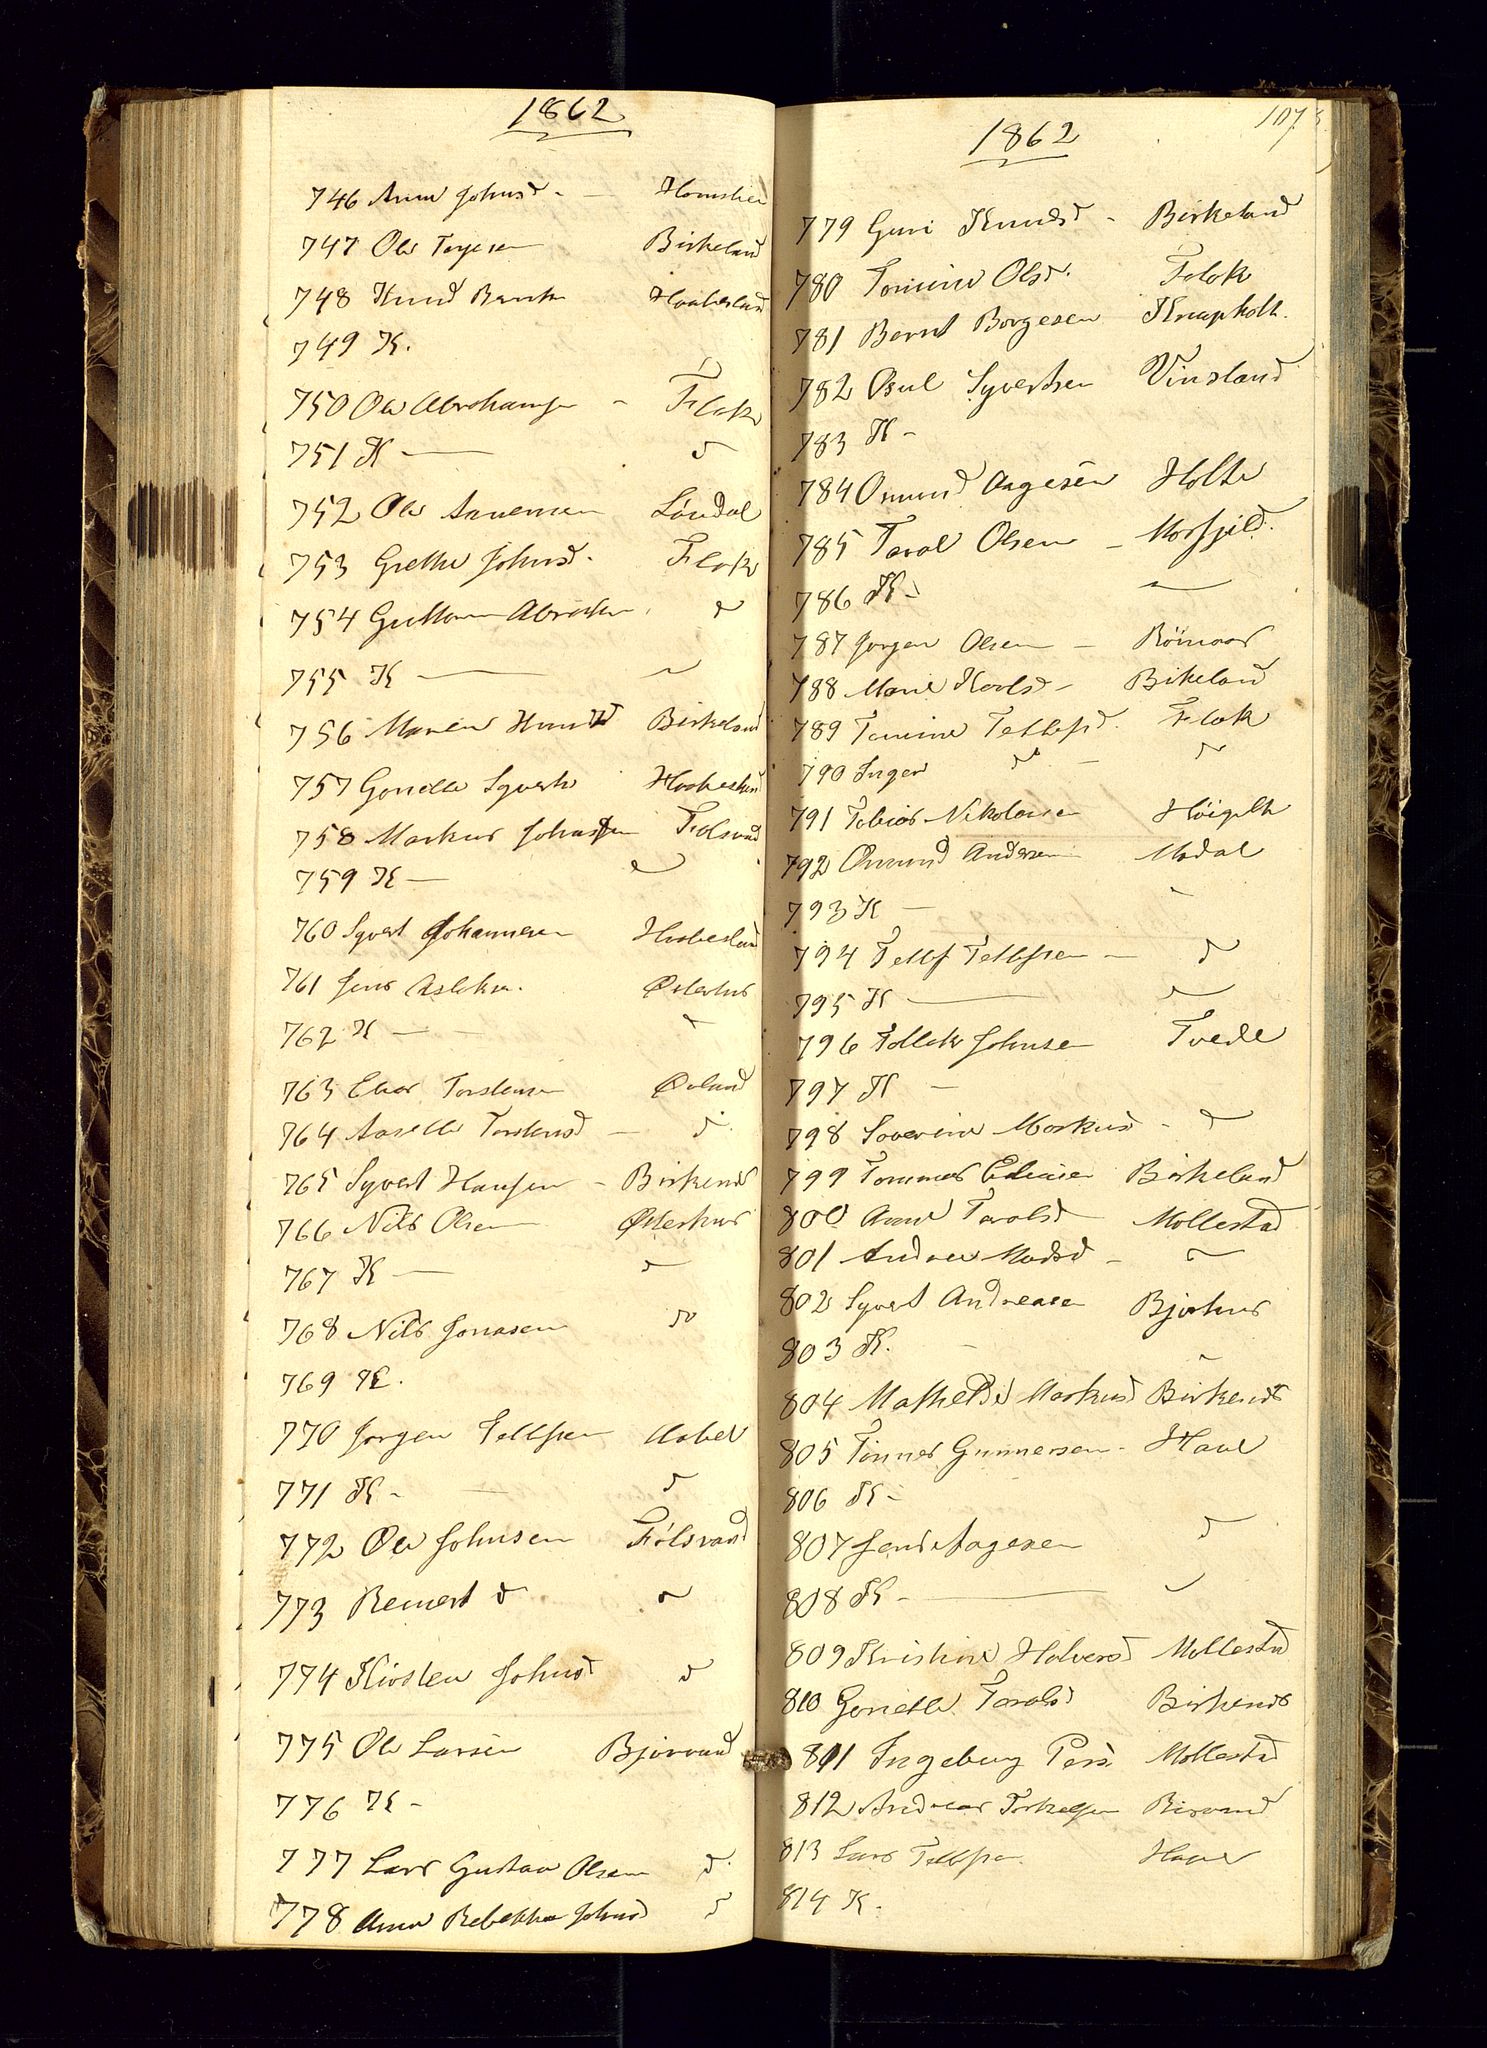 1862
746 Anne Johnsd - Homstien
747 Ole Tagesen Birkeland
748 Knud Bernts Haabesland
749 K.
750 Ole Abrahamsen - Flak
751 K — d
752 Ole Aanensen Løvdal
753 Grethe Johnsd. Flak
754 Guttorm Abrahs d
755 K — d
756 Maren Knudsd Birkeland
757 Gonelle Syverts Haabesland
758 Markus Johnsen Fidsvand
759 K — d
760 Syvert Johannesen Haabesland
761 Jens Aslaksen. Østerhus
762 K — d
763 Elias Torstensen Øvland
764 Aaselle Torstensd — d.
765 Syvert Hansen - Birkenes
766 Nils Olsen Østerhus
767 K — d
768 Nils Jonasen do
769 K.
770 Jørgen Tellefsen Aabel
771 K - d
772 Ole Johnsen Fidsvand
773 Reinert d d
774 Kirsten Johnsd d
775 Ole Larsen Bjørvand
776 K -
777 Lars Gustav Olsen d.
778 Anne Rebekka Johnsd d
1862 107
779 Guri Knudsd - Birkeland
780 Tomine Olsd. Flak
781 Bernt Borgesen Knapholt.
782 Osul Syvertsen Vinsland
783 K -
784 Osmund Aagesen Holte
785 Tarol Olsen - Morfjeld.
786 K -
787 Jørgen Olsen -
788 Marie Karlsd - Birkeland
789 Tomine Tellefsd. Flak
790 Inger d - d
791 Tobias Nikolaisen
792 Osmund Andersen Modal
793 K -
794 Tellef Tellefsen - d
795 K — d
796 Tollak Johnsen Tvede
797 K -
798 Severine Markusd - d
799 Tommas Edvinsen Birkeland
800 Anne Tarolsd Mollestad
801 Andrea Madsd - d
802 Syvert Andreasen Bjorhus
803 K. -
804 Mathelde Markusd Birkenes
805 Tønnes Gunnersen - Haave
806 K -
807 Jens Aagesen d
808 K - d
809 Kristine Halversd Mollestad
810 Gonelle Tarolsd Birkenes
811 Ingeborg Persd Mollestad
812 Andreas Torkelsen Birvand
813 Lars Tellefsen. Haave
814 K.